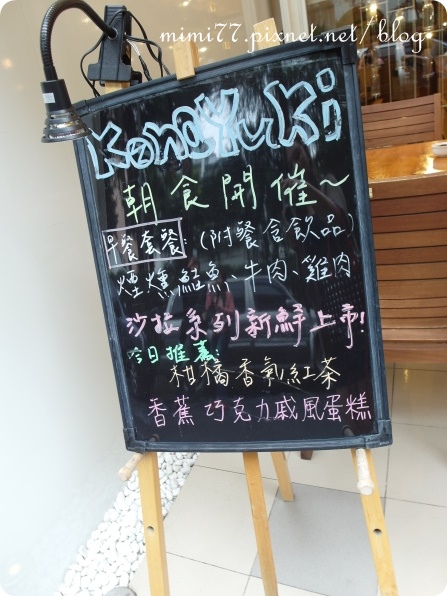 mimi77.pixnet.net/blog
KonoYuki
朝食開催~
早餐套餐:(附餐含飲品)
煙燻鮭魚、牛肉、雞肉
沙拉系列新鮮上市!
今日推薦:
柑橘香氣紅茶
香蕉巧克力戚風蛋糕